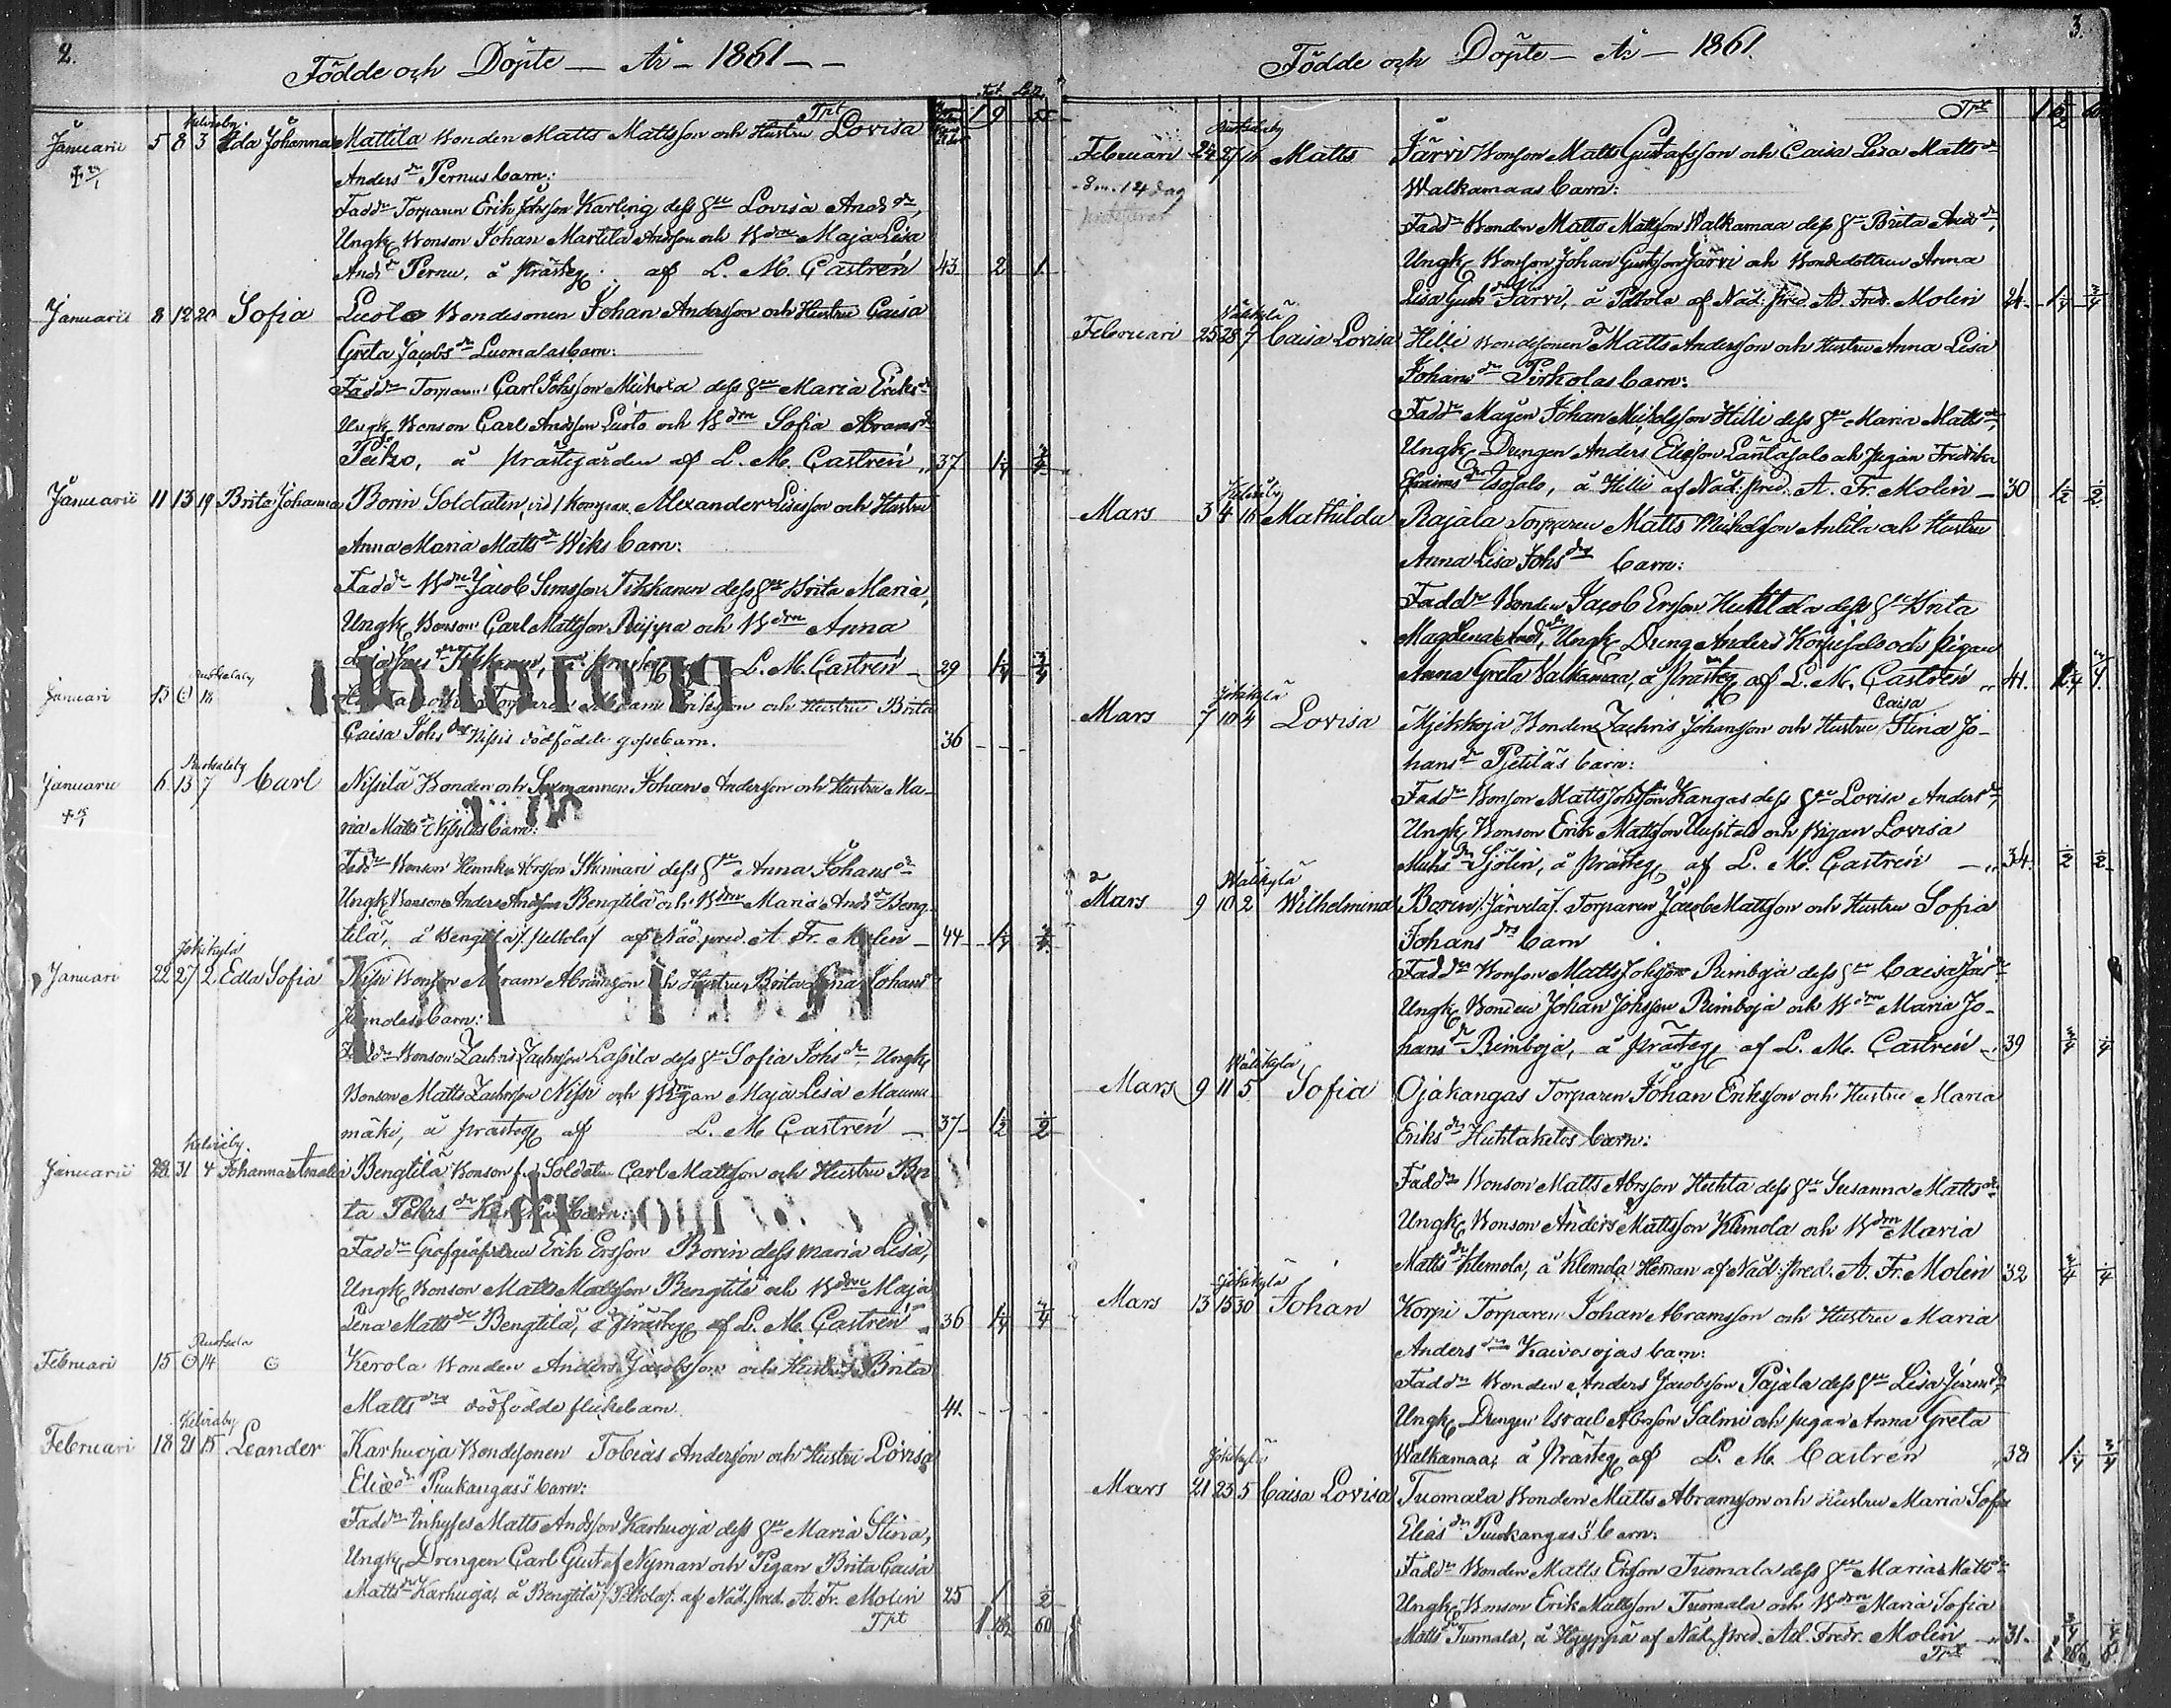 2.
Födde och Döpte — År — 1861 — —
Tpt 1 9
Kelviåby
Januarii 5 8 3 Eda Johanna Mattila Bonden Matts Mattsson och Hustru Lovisa
Anders dr Pernus barn:
Fadd: Torparen Erik Johsson Karling dess hu Lovisa And dr,
Ungk Bonson Johan Martila Andsson och Bdrn Maja Lisa
And dr Pernu, å Prästeg. af L. M. Castrén 43 2 1
Januarii 8 12 20 Sofia Luoto Bondesonen Johan Andersson och Hustru Caisa
Greta Jacobs dr Luomalas barn:
Fadd: Torparen Carl Johsson Meckola dess hu Maria Eriks dr
Ungk Bonson Carl Andsson Luoto och Bdrn Sofia Abrams dr
Peitzo, å Prästegården af L. M. Castrén 37 1/4 3/4
Januarii 11 13 19 Brita Johanna Borin Soldaten vid 1 kompan. Alexander Lisisson och Hustru
Anna Maria Matts dr Wiks barn:
Fadd: Bdn Jacob Simsson Tikkanen dess hu Brita Maria,
Ungk Bonson Carl Mattsson Ruippa och Bdrn Anna
Tikkanen, å Prästeg af L. M. Castrén 29 1/4 3/4
Ruokolaby
Januari 13 18 Torparen Abram Eriksson och Hustru Brita
Caisa Johs dr Nisis dödfödde gossebarn. 36
Ruokolaby
Januarii 6 13 7 Carl Nissilä Bonden och Sexmannen Johan Andersson och Hustru Ma-
ria Matts dr Nissiläs barn:
Fadd: Bonson Henrik Ersson Skinnari dess hu Anna Johans dr
Ungk Bonson Anders Andsson Bengtilä och Bdrn Maria And dr Beng-
tilä, å Bengtilä /: Peltola :/ af Näd: pred. A. Fr. Molin 44 1/4 3/4
Jokikylä
Januari 22 27 2 Edla Sofia Nissi Bonson Abram Abramsson och Hustru Brita Lena Johans dr
barn:
Fadd: Bonson Zachris Zachrisson Lassila dess hu Sofia Johs dr, Ungk
Bonson Matts Zachrisson Nissi och Pigan Maja Lisa Maunu-
mäki, å Prästeg af L. M. Castrén 37 1/2 1/2
Kelviåby
Januarii 28 31 4 Johanna Amalia Bengtilä Bonson f.d. Soldaten Carl Mattsson och Hustru Bri-
ta Pehrs dr barn:
Fadd: Erik Ersson Borin dess Maria Lisa,
Ungk Bonson Matts Mattsson Bengtilä och Bdrn Maja
Lena Matts dr Bengtilä, å Prästeg af L. M. Castrén 36 1/4 3/4
Ruokola
Februari 15 14 Kerola Bonden Anders Jacobsson och Hustru Brita
Matts dr dödfödde flickebarn. 41.
Kelviåby
Februari 18 21 15 Leander Karhuoja Bondesonen Tobias Andersson och Hustru Lovisa
Eliæ dr Puukangas's barn:
Fadd: Inhyses Matts Andsson Karhuoja dess hu Maria Stina,
Ungk Drengen Carl Gustaf Nyman och Pigan Brita Caisa
Matts dr Karhuoja, å Bengtilä /: Peltola :/ af Näd. pred. A. Fr. Molin 25 1 1/2
Tpt 1 60
3.
Födde och Döpte — År — 1861.
Tpt
Ruokolaby
Februari 24 27 Matts Järvi Bonson Matts Gustafsson och Caisa Lisa Matts dr
Walkamaas barn:
Fadd: Bonden Matts Mattsson Walkamaa dess hu Brita And dr,
Ungk Bonson Johan Gustsson Järvi och Bondedottren Anna
Lisa Gust dr Järvi, å Peltola af Näd: pred. Ad. Fred. Molin 24 1/4 3/4
Wälikylä
Februari 25 28 7 Caisa Lovisa Hilli Bondesonen Matts Andersson och Hustru Anna Lisa
Johans dr Pirkolas barn:
Fadd: Mågen Johan Mickelsson Hilli dess hu Maria Matts dr,
Ungk Drengen Anders Eliæson Länläsalo och Pigan Fredrika
Isosalo, å Hilli af Näd: pred: A. Fr. Molin 30 1/2 1/2
Kelviåby
Mars 3 4 Mathilda Rajala Torparen Matts Mickelsson Antila och Hustru
Anna Lisa Johs dr barn:
Fadd: Bonden Jacob Ersson Huhtala dess hu Brita
Magdlena And dr, Ungk Dreng Anders Korpisalo och Pigan
Anna Greta Walkamaa, å Prästeg af L. M. Castrén 41.
Jokikylä
Caisa
Mars 7 10 4 Lovisa Kjekkoja Bonden Zachris Johansson och Hustru Stina Jo-
hans dr Pjetiläs barn:
Fadd: Bonson Matts Johsson Kangas dess hu Lovisa Anders dr,
Ungk Bonson Erik Mattsson Uusitalo och Pigan Lovisa
Mich dr Sjölin, å Prästeg af L. M. Castrén 34. 1/2 1/2
Wälikylä
Mars 9 10 2 Wilhelmina Borin /: Järvelä :/ Torparen Jacob Mattsson och Hustru Sofia
Johans dr barn
Fadd: Bonson Matts Johsson Rimboja dess hu Caisa
Ungk Bonden Johan Johsson Rimboja och Bdrn Maria Jo-
hans dr Rimboja, å Prästeg af L. M. Castrén 39 3/4 1/4
Wälikylä
Mars 9 11 5 Sofia Ojakangas Torparen Johan Eriksson och Hustru Maria
Eriks dr Huhtaketos barn:
Fadd: Bonson Matts Abrsson Huhta dess hu Susanna Matts dr
Ungk Bonson Anders Mattsson Klemola och Bdrn Maria
Matts dr Klemola, å Klemola Heman af Näd: pred. A. Fr. Molin 32 3/4 1/4
Jokikylä
Mars 13 15 30 Johan Korpi Torparen Johan Abramsson och Hustru Maria
Anders dr Kaivosojas barn:
Fadd: Bonden Anders Jacobsson Pajala dess hu Lisa
Ungk Drengen Israel Abrsson Salmi och Pigan Anna Greta
Walkamaa, å Prästeg af L. M. Castrén 38 1/4 3/4
Jokikylä
Mars 21 25 5 Caisa Lovisa Tuomala Bonden Matts Abramsson och Hustru Maria Sofia
Elias dr Puukangas's barn:
Fadd: Bonden Matts Ersson Tuomala dess hu Maria Matts dr
Ungk Bonson Erik Mattsson Tuomala och Bdrn Maria Sofia
Matts dr Tuomala, å Hyyppä af Näd. pred. Ad. Fredr. Molin 31. 3/4 1/4
Tpt